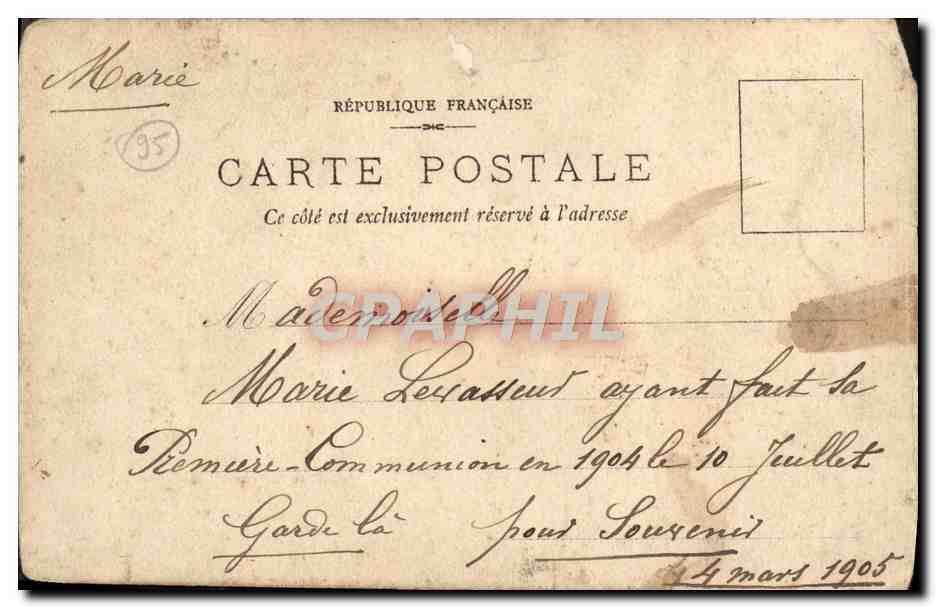 Marie
95
RÉPUBLIQUE FRANÇAISE
CARTE POSTALE
Ce côté est exclusivement réservé à l'adresse
Mademoiselle
CPAPHIL
Marie Levasseur ayant fait sa
Première-Communion en 1904 le 10 Juillet
Garde là pour Souvenir
4 mars 1905